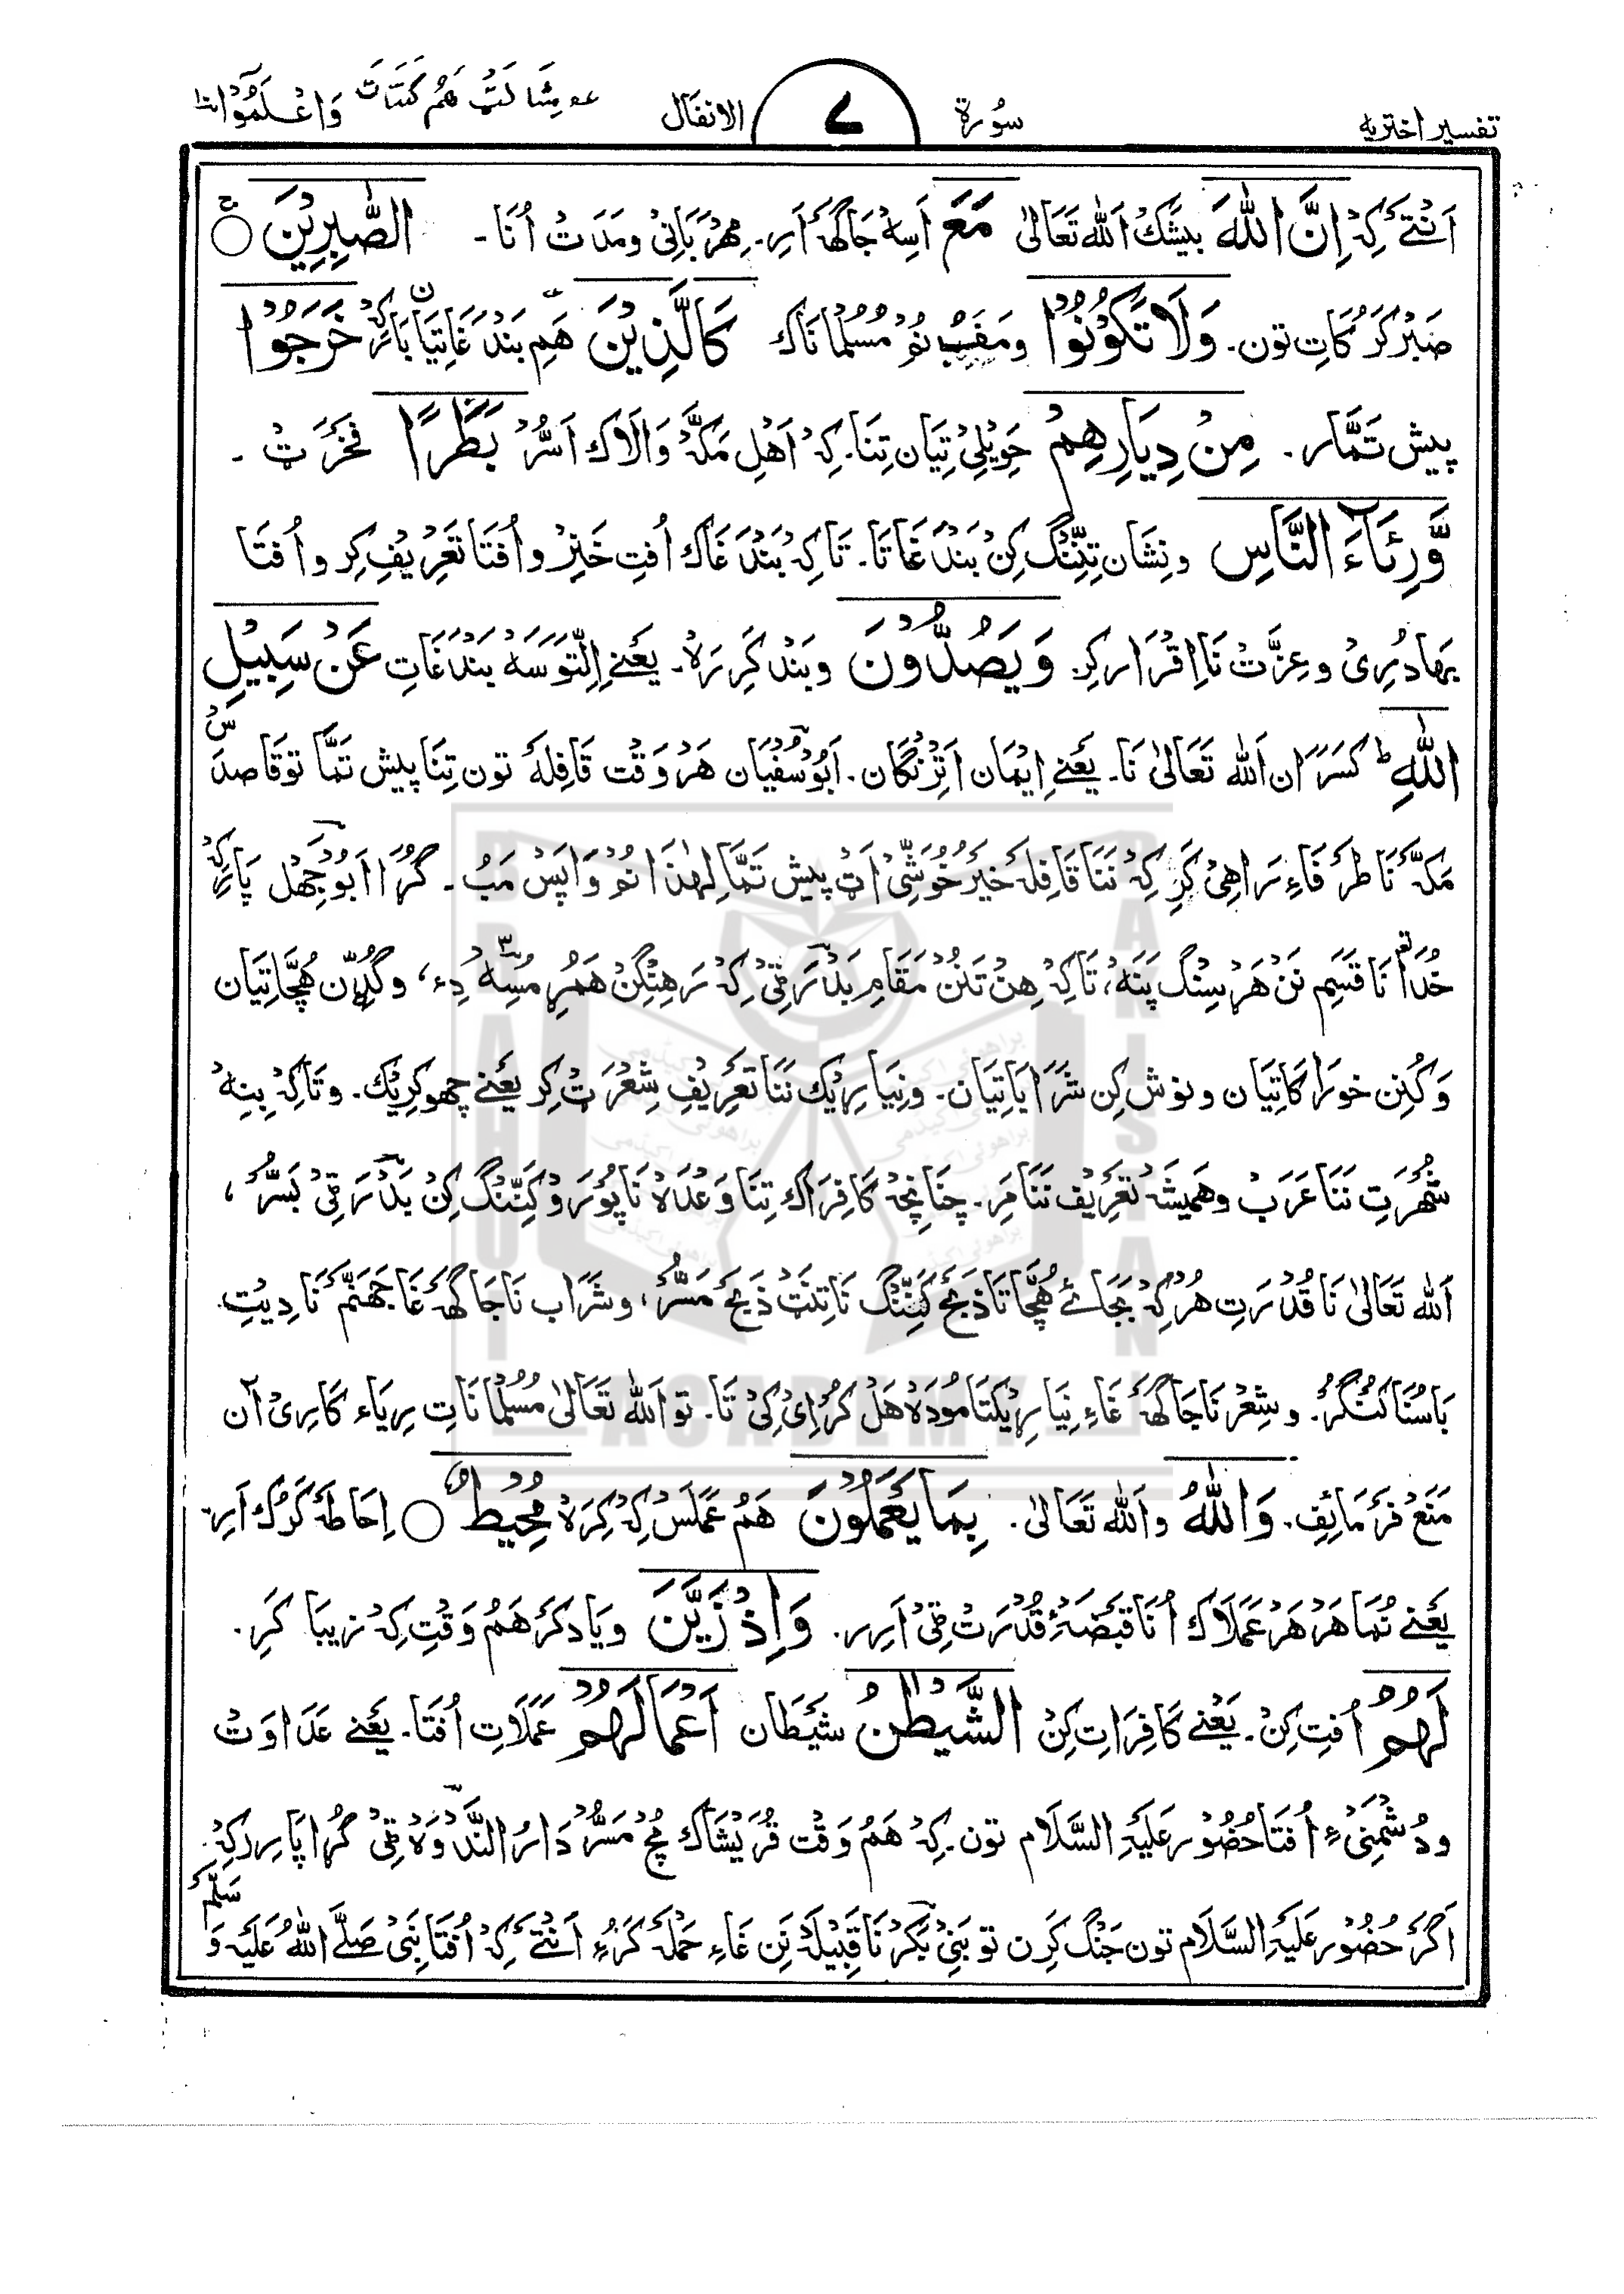 تفسیر اختریه سُوْرة ۷ الانفال عه مِثَالَتٹ هَمُ كَتَاتَ وَاعْلَمُوْٓا ۱۰
اَنْتَۓ کِہْ اِنَّ اللّٰهَ بیشَکْ اَللّٰه تَعَالیٰ مَعَ اَسِهْ جَاگَهَ اَرِ۔ مِهْرَبَانِیْ ومَدَتْ اُنَا۔ الصّٰبِرِيْنَ ○
صَبْرْ کَرُ کَاتِ تون۔ وَلَا تَكُوْنُوْا ومَفَبُ نُمْ مُسُلْمَانَاک كَالَّذِيْنَ هَمِ بَنْدَغَاتِیَانْ بَارکِہْ خَرَجُوْا
پیش تَمَّار۔ مِنْ دِيَارِهِمْ حَوِیْلِیْ تِیَان تِنَا۔ کِہْ اَهْلِ مَکَّهْ وَالَاک اَسُّرْ بَطَرًا فَخَرَتْ۔
وَّرِئَآءَ النَّاسِ و نِشَان تِنِّنْگ کِنْ بَنْدَغَاتَا۔ تَاکِہْ بَنْدَغَاک اُفتِ خَنِرْ و اُفتَا تَعَرِیْفِ کِر و اُفتَا
بَهادُرِیْ و عِزَّتْ نَا اِقْرَار کِر وَيَصُدُّوْنَ و بَنْد کَرِرَهْ۔ یَعْنےِ اِلتَوَسَهْ بَنْدَغَاتِ عَنْ سَبِيْلِ
اللّٰهِ ط کَسَرَان اَللّٰه تَعَالیٰ نَا۔ یَعْنےِ اِیْمَان اَتِرْنگان۔ اَبُوْسُفْیَان هَرْوَقْت قَافِلَهٔ تون تِنَا پیش تَمَّا تو قَاصِدَسْ
مَکَّهٔ نَا طَرْفَاءِ رَاهِیْ کَرِ کِہْ نَنَا قَافِلَهْ خَیْرْ خُوْشِّیْ اَٹْ پیش تَمَّا لِهٰذَا نُمْ وَاپَسْ مَبُ۔ گُرَا اَبُوْجَهْل پَارِکِہْ
خُدَا نَا قَسَمِ نَنْ هَرْسِنْگ پَنَهْ، تَاکِہْ هِنْ تَنُنْ مَقَامِ بَدْرَ ٹِیْ کِہْ رَهِنْگِنْ هَمِر مُسِهْ دِء، وگُذِّن هُچَّاتِیَان
وَکُنِن خورَاکَاتِیَان و نوش کِن شَرَابَاتِیَان۔ ونِیَارِیْک نَنَا تَعَرِیْفِ شِعْرَتْ کِر یَعْنےِ چھوکِرِیْک۔ و تَاکِہْ بِنِهْ
شُهْرَتِ نَنَا عَرَبْ و هَمِیْشَهْ تَعَرِیْف نَنَا مَر۔ چنَانِچَهْ کَافِرَاک تِنَا وَعْدَهْ نَا پُوْرَوْ کَنِّنْگ کِنْ بَدْرَ ٹِیْ بَسُّرْ،
اَللّٰه تَعَالیٰ نَا قُدْرَتِ هُرْ کِہْ بَجَائے هُچَّاتَا ذَبَحَ کَنِّنْگ نَا تِنَتْ ذَبَحَ مَسُّرْ، و شَرَاب نَا جَاگَهَ غَا جَهَنَّمَ نَا دِیْتِ
بَاسُنَا کُنْگُرْ۔ و شِعْرْ نَا جَاگَهَ غَاءِ نِیَارِیْکتَا مُوْدَهْ هَلْ کُرُ اِیْ کِیْ تَا۔ تو اَللّٰه تَعَالیٰ مُسُلْمَانَاتِ رِیَاء کَارِیْ آن
مَنَعْ فَرَمَائِفِ۔ وَاللّٰهُ واَللّٰه تَعَالیٰ۔ بِمَا يَعْمَلُوْنَ هَمُ عَمَلَسْ کِہْ کِرَهْ مُحِيْطٌ ○ اِحَاطَهْ کَرُکْ اَرِ۔
یَعْنےِ نُمَا هَرْ هَرْ عَمَلَاک اُنَا قَبْضَهٔ قُدْرَتْ ٹِیْ اَرِر۔ وَاِذْ زَيَّنَ و یَاد کَرَ هَمُ وَقْتِ کِہْ زیبَا کَرِ۔
لَهُمُ اُفتِ کِنْ۔ یَعْنےِ کَافِرَاتِ کِنْ الشَّيْطٰنُ شَیْطَان اَعْمَالَهُمْ عَمَلَاتِ اُفتَا۔ یَعْنےِ عَدَاوَتْ
ودُشْمَنِیْءِ اُفتَا حُضُوْر عَلَیْهِ السَّلَام تون۔ کِہْ هَمُ وَقْت قُرَیْشَاک مُچْ مَسُّرْ دَارُ النَّدْوَهْ ٹِیْ گُرَا پَارِرکِہْ
اَگَرْ حُضُوْر عَلَیْهِ السَّلَام تون جَنْگ کَرِن تو بَنِیْ بَکَرْ نَا قَبِیْلَهْ نَن غَاءِ حَمْلَهْ کَرُءِ اَنْتَۓ کِہْ اُفتَا نَبِیْ صَلَّے اللّٰهُ عَلَیْهِ وَسَلَّمَ